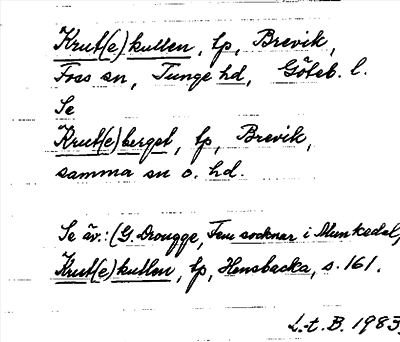 Krut(e)kullen, tp, Brevik,
Foss sn, Tunge hd, Göteb. l.
Se
Krut(e)berget, tp, Brevik,
samma sn o. hd.
Se äv.: (G. Drougge, Fem socknar i Munkedal,
Krut(e)kullen, tp, Hensbacka, s. 161.
L-t. B. 1983.